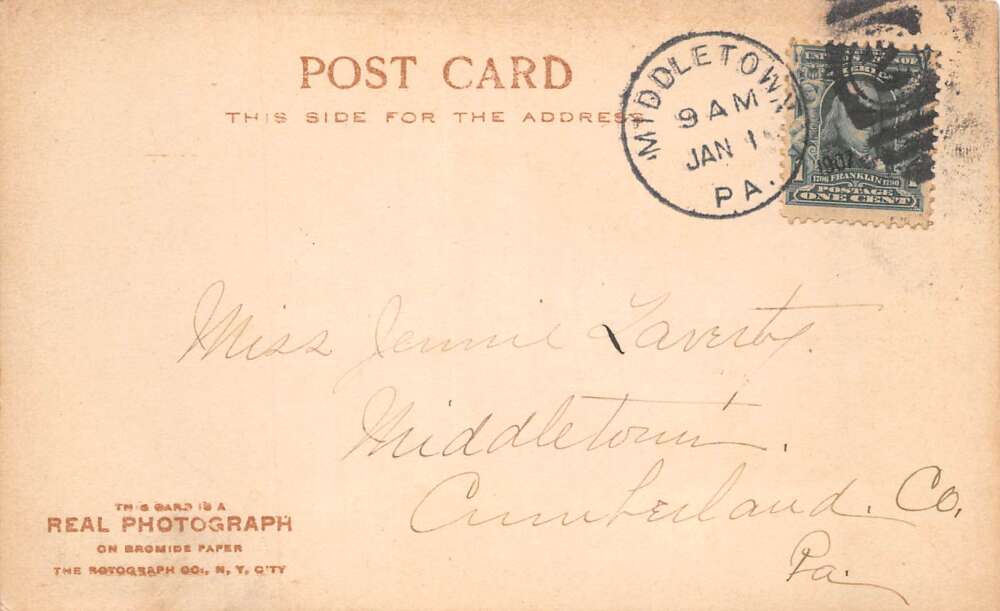 POST CARD
THIS SIDE FOR THE ADDRESS
MIDDLETOWN
9 AM
JAN 1
1907
PA.
UNITED STATES OF
AMERICA
1706 FRANKLIN 1790
POSTAGE
1 ONE CENT 1
Miss Jennie Laverty.
Middletown.
Cumberland. Co.
Pa.
THIS CARD IS A
REAL PHOTOGRAPH
ON BROMIDE PAPER
THE ROTOGRAPH CO., N. Y. CITY